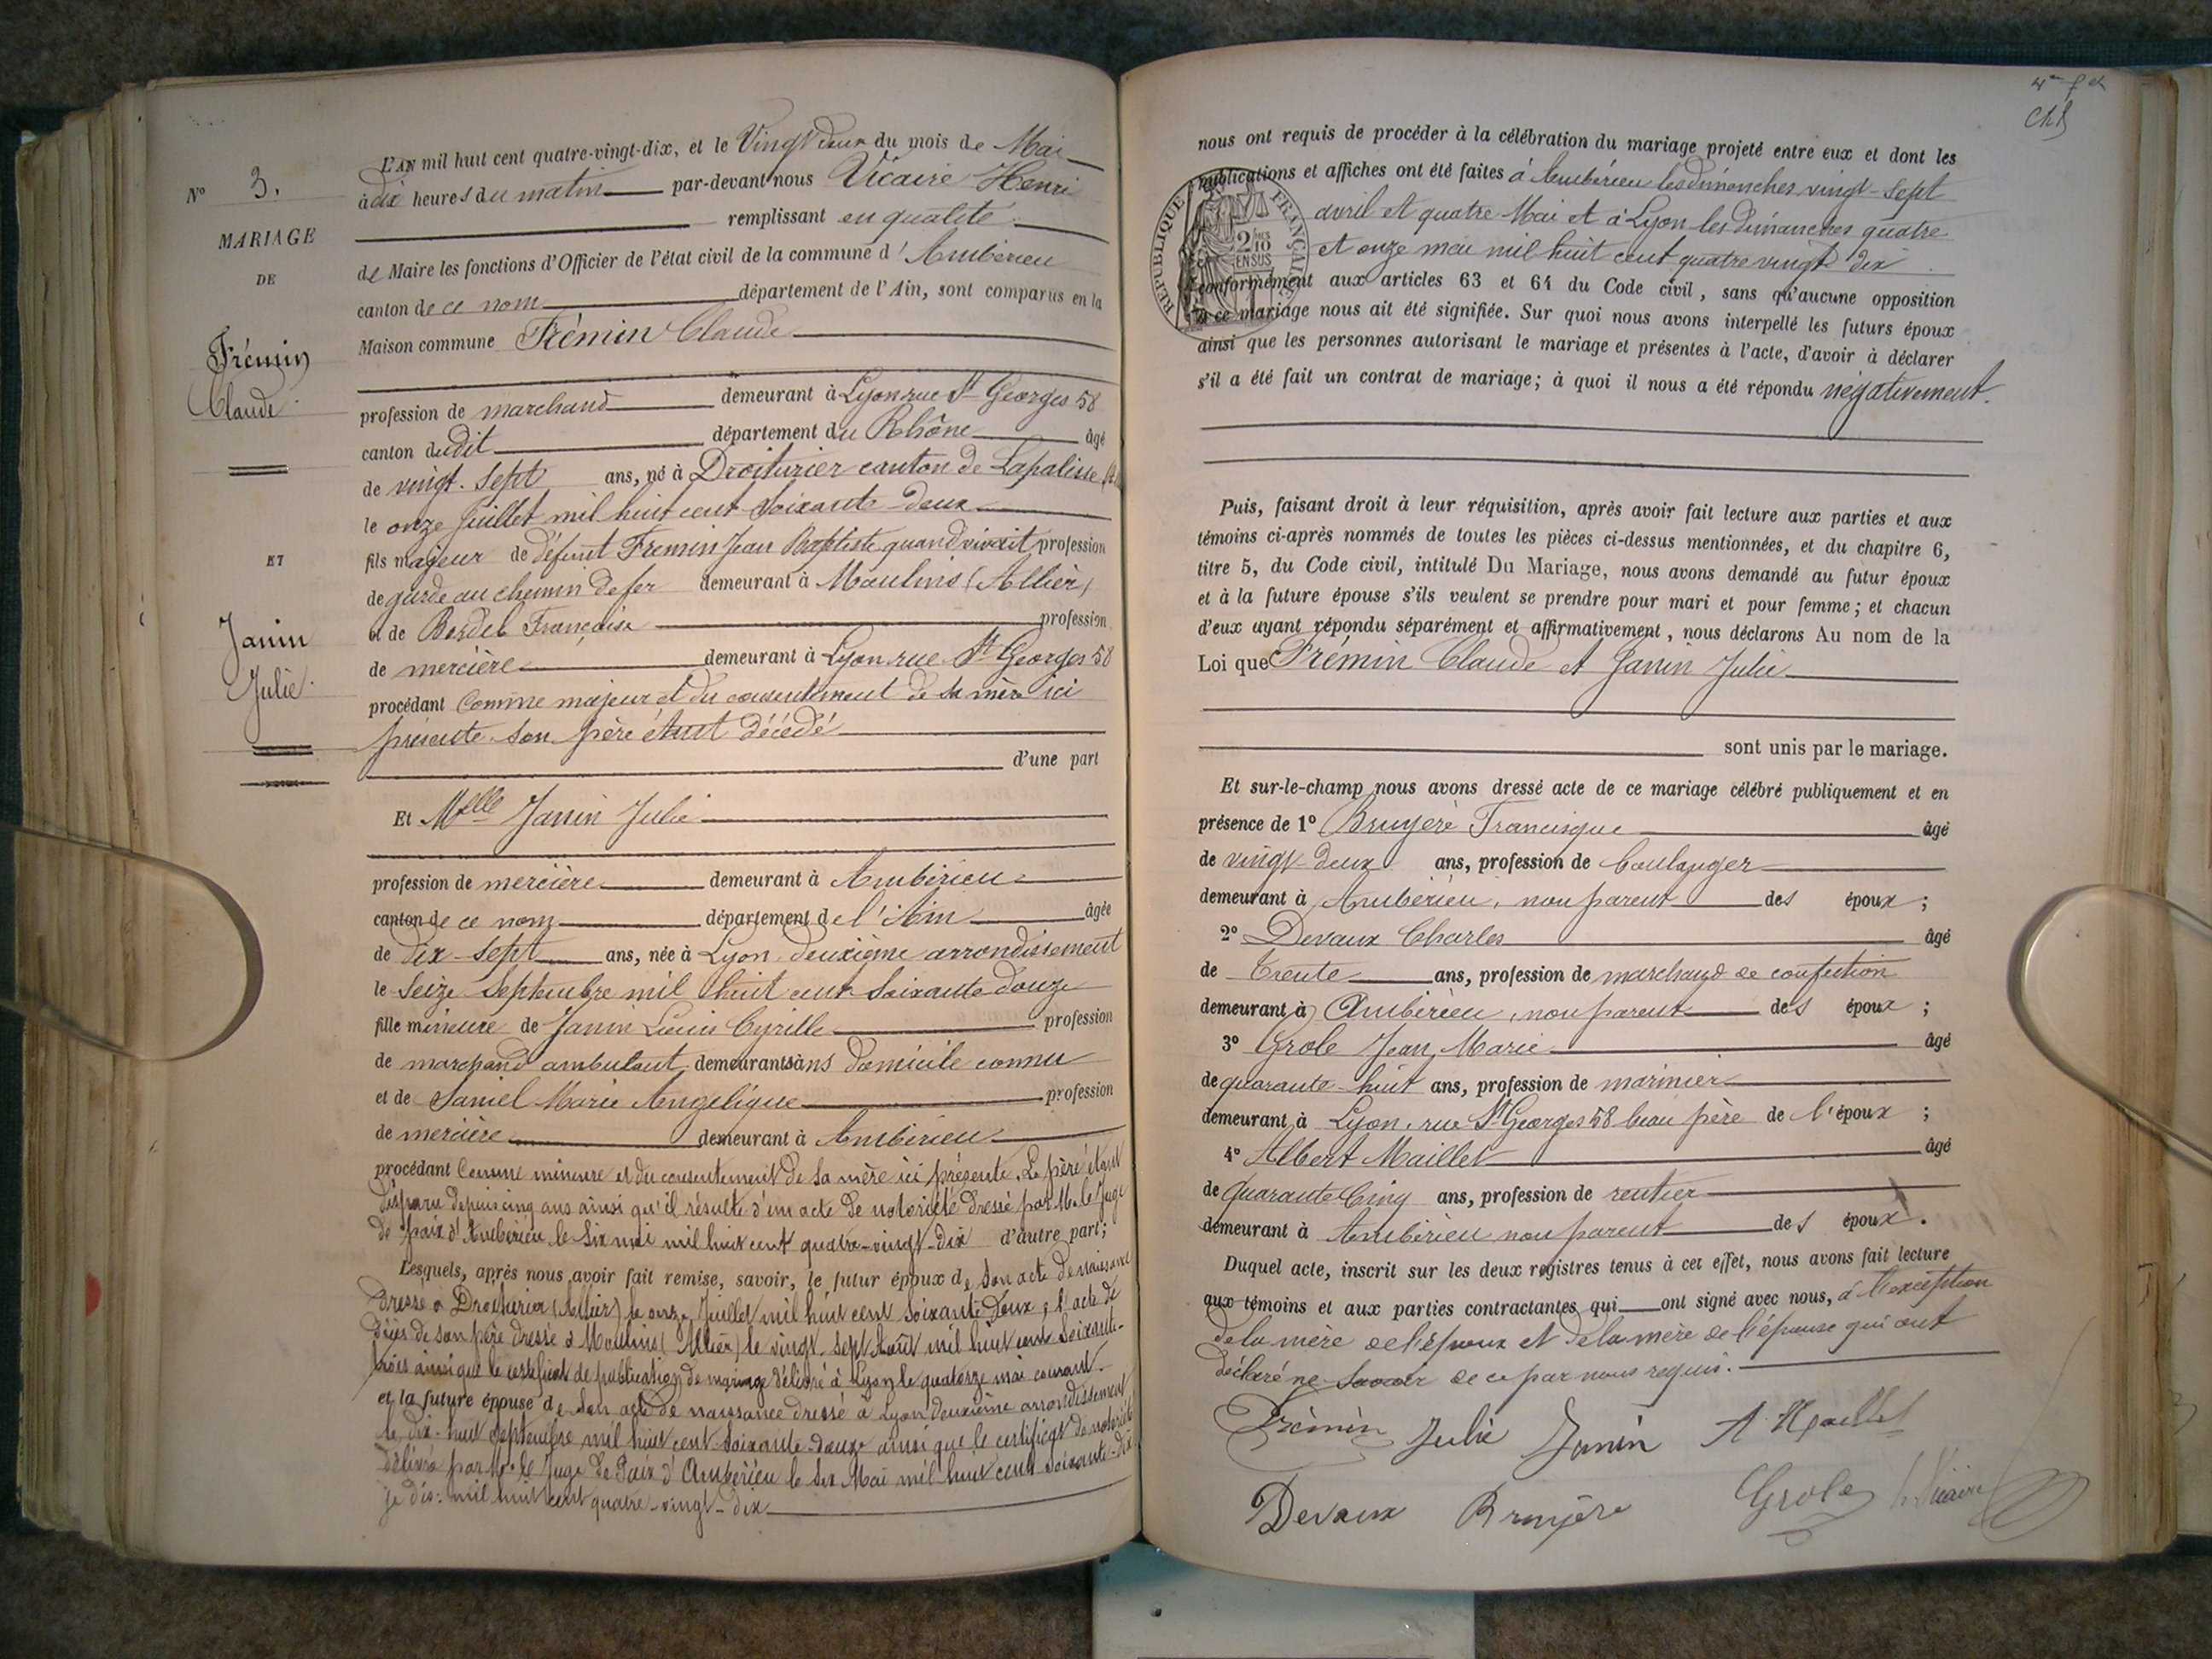 N° 3.
MARIAGE
DE
Frémin
Claude
ET
Janin
Julie
L'AN mil huit cent quatre-vingt-dix, et le Vingt deux du mois de Mai
à dix heures du matin par-devant nous Vicaire Henri
remplissant en qualité
de Maire les fonctions d'Officier de l'état civil de la commune d'Ambérieu
canton de ce nom département de l'Ain, sont comparus en la
Maison commune Frémin Claude
profession de marchand demeurant à Lyon rue St Georges 58
canton dudit département du Rhône âgé
de vingt-sept ans, né à Droiturier canton de Lapalisse
le onze Juillet mil huit cent soixante-deux
fils majeur de défunt Fremin Jean Baptiste quand vivait profession
de garde au chemin de fer demeurant à Moulins (Allier)
et de Bardel Françoise profession
de mercière demeurant à Lyon rue St Georges 58
procédant comme majeur et du consentement de sa mère ici
présente son père étant décédé
d'une part
Et Melle Janin Julie
profession de mercière demeurant à Ambérieu
canton de ce nom département de l'Ain âgée
de dix-sept ans, née à Lyon deuxième arrondissement
le seize septembre mil huit cent soixante douze
fille mineure de Janin Louis Cyrille profession
de marchand ambulant demeurant sans domicile connu
et de Saniel Marie Angélique profession
de mercière demeurant à Ambérieu
procédant comme mineure et du consentement de sa mère ici présente. Le père étant
disparu depuis cinq ans ainsi qu'il résulte d'un acte de notoriété dressé par M. le Juge
de paix d'Ambérieu le six mai mil huit cent quatre-vingt-dix d'autre part;
Lesquels, après nous avoir fait remise, savoir, le futur époux de son acte de naissance
dressé à Droiturier (Allier) le onze Juillet mil huit cent soixante deux; l'acte de
décès de son père dressé à Moulins (Allier) le vingt-sept Août mil huit cent soixante-
trois ainsi que le certificat de publication de mariage délivré à Lyon le quatorze mai courant
et la future épouse de son acte de naissance dressé à Lyon deuxième arrondissement
le dix-huit septembre mil huit cent soixante-douze ainsi que le certificat de notoriété
délivré par Mr le Juge de Paix d'Ambérieu le six Mai mil huit cent soixante-dix
je dis: mil huit cent quatre-vingt-dix
nous ont requis de procéder à la célébration du mariage projeté entre eux et dont les
publications et affiches ont été faites à Ambérieu les dimanches vingt-sept
avril et quatre Mai et à Lyon les dimanches quatre
et onze mai mil huit cent quatre vingt dix
RÉPUBLIQUE FRANÇAISE
conformément aux articles 63 et 64 du Code civil, sans qu'aucune opposition
à ce mariage nous ait été signifiée. Sur quoi nous avons interpellé les futurs époux
ainsi que les personnes autorisant le mariage et présentes à l'acte, d'avoir à déclarer
s'il a été fait un contrat de mariage; à quoi il nous a été répondu négativement.
Puis, faisant droit à leur réquisition, après avoir fait lecture aux parties et aux
témoins ci-après nommés de toutes les pièces ci-dessus mentionnées, et du chapitre 6,
titre 5, du Code civil, intitulé Du Mariage, nous avons demandé au futur époux
et à la future épouse s'ils veulent se prendre pour mari et pour femme; et chacun
d'eux ayant répondu séparément et affirmativement, nous déclarons Au nom de la
Loi que Frémin Claude et Janin Julie
sont unis par le mariage.
Et sur-le-champ nous avons dressé acte de ce mariage célébré publiquement et en
présence de 1° Bruyère Francisque âgé
de vingt-deux ans, profession de boulanger
demeurant à Ambérieu, non parent des époux;
2° Devaux Charles âgé
de trente ans, profession de marchand de confection
demeurant à Ambérieu, non parent des époux;
3° Grole Jean Marie âgé
de quarante-huit ans, profession de marinier
demeurant à Lyon, rue St Georges 58 beau père de l'époux;
4° Albert Maillet âgé
de quarante cinq ans, profession de rentier
demeurant à Ambérieu non parent des époux.
Duquel acte, inscrit sur les deux registres tenus à cet effet, nous avons fait lecture
aux témoins et aux parties contractantes qui ont signé avec nous, à l'exception
de la mère de l'époux et de la mère de l'épouse qui ont
déclaré ne savoir de ce par nous requis.
Frémin Julie Janin A. Maillet
Devaux Bruyère Grole H. Vicaire